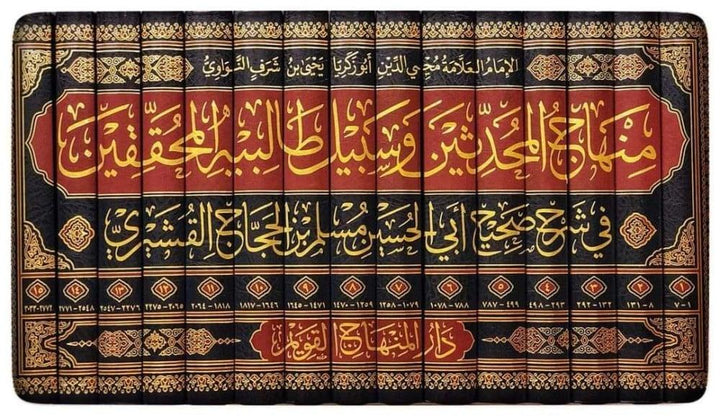 الإمام العلامة محيي الدين أبو زكريا يحيى بن شرف النواوي
منهاج المحدثين وسبيل طالبيه المحققين
في شرح صحيح أبي الحسين مسلم بن الحجاج القشيري
١ ٢ ٣ ٤ ٥ ٦ ٧ ٨ ٩ ١٠ ١١ ١٢ ١٣ ١٤ ١٥
١-٧ ٨-١٣١ ١٣٢-٢٩٢ ٢٩٣-٤٩٨ ٤٩٩-٧٨٧ ٧٨٨-١٠٧٨ ١٠٧٩-١٢٥٨ ١٢٥٩-١٤٧٠ ١٤٧١-١٦٤٥ ١٦٤٦-١٨١٧ ١٨١٨-٢٠٦٤ ٢٠٦٥-٢٢٧٥ ٢٢٧٦-٢٥٤٧ ٢٥٤٨-٢٧٧١ ٢٧٧٢-٣٠٣٣
دار المنهاج القويم